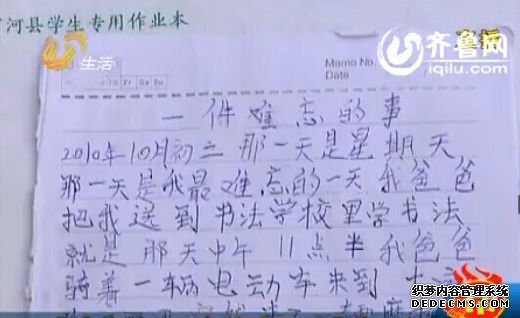 河县学生专用作业本
生活
直播
齐鲁网
iqilu.com
Memo No.
Date
Th Fr Sa Su
一件难忘的事
2010年10月初三 那一天是星期天
那一天是我最难忘的一天我爸爸
把我送到书法学校里学书法
就是那天中午11点半我爸爸
骑着一辆电动车来到
织梦内容管理系统
DEDECMS.COM